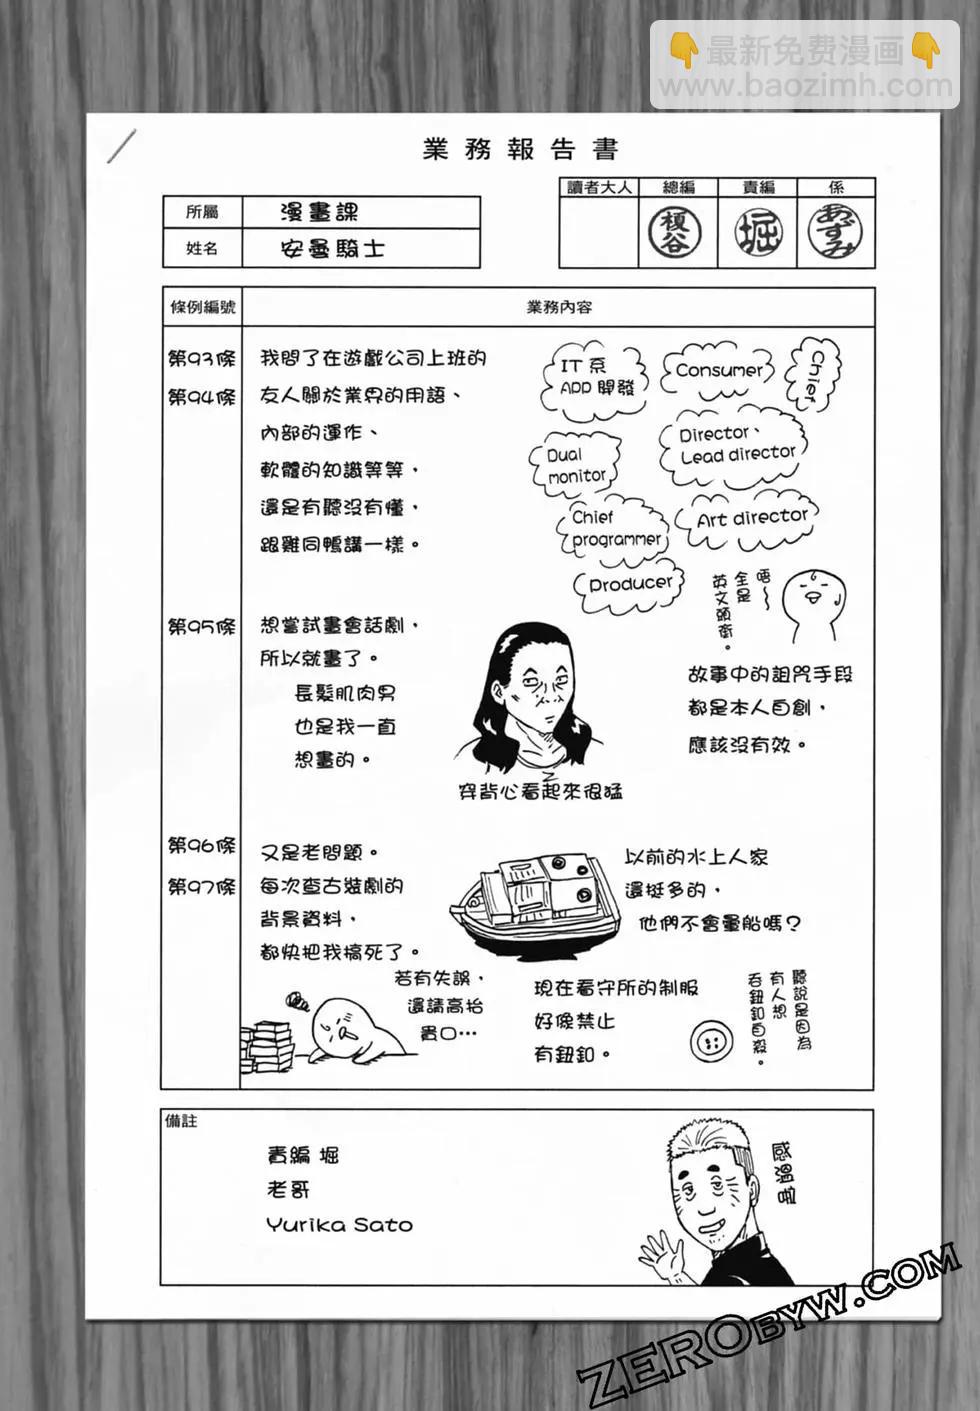 👇最新免费漫画👇
www.baozimh.com
業務報告書
讀者大人 總編 責編 係
榎谷 堀 あずみ
所屬 漫畫課
姓名 安曇騎士
條例編號 業務內容
第93條 我問了在遊戲公司上班的
第94條 友人關於業界的用語、
內部的運作、
軟體的知識等等，
還是有聽沒有懂，
跟雞同鴨講一樣。
IT系
APP開發
Consumer
Chief
Dual
monitor
Director、
Lead director
Chief
programmer
Art director
Producer
唔～
全是
英文頭銜。
第95條 想嘗試畫會話劇，
所以就畫了。
長髮肌肉男
也是我一直
想畫的。
穿背心看起來很猛
故事中的詛咒手段
都是本人自創，
應該沒有效。
第96條 又是老問題。
第97條 每次查古裝劇的
背景資料，
都快把我搞死了。
以前的水上人家
還挺多的，
他們不會暈船嗎？
若有失誤，
還請高抬
貴口…
現在看守所的制服
好像禁止
有鈕釦。
聽說是因為
有人想
吞鈕釦自殺。
備註
責編 堀
老哥
Yurika Sato
感溫啦
ZEROBYW.COM